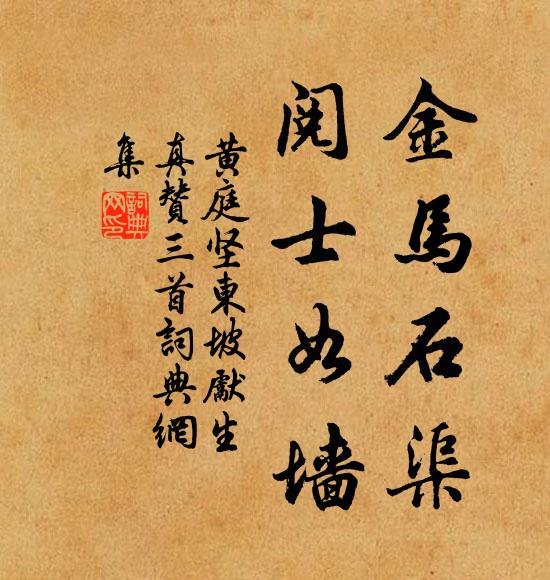 金馬石渠
閱士如墙
黄庭坚東坡獻生
真贊三首詞典網
集
詞典網印